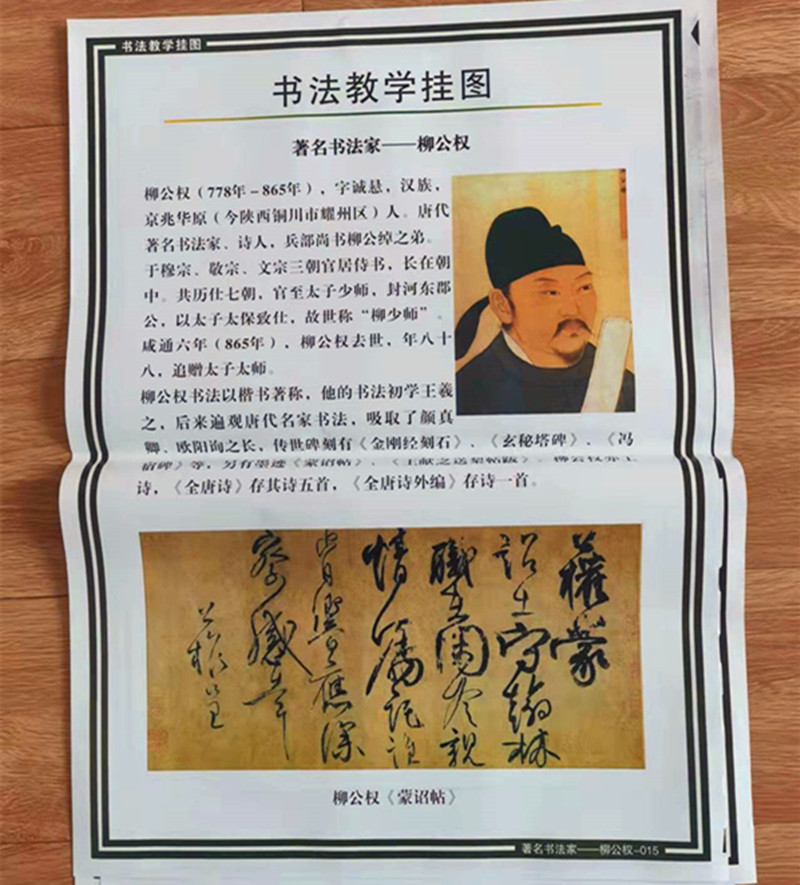 书法教学挂图
书法教学挂图
著名书法家——柳公权
柳公权（778年－865年），字诚悬，汉族，
京兆华原（今陕西铜川市耀州区）人。唐代
著名书法家、诗人，兵部尚书柳公绰之弟。
于穆宗、敬宗、文宗三朝官居侍书，长在朝
中。共历仕七朝，官至太子少师，封河东郡
公，以太子太保致仕，故世称“柳少师”。
咸通六年（865年），柳公权去世，年八十
八，追赠太子太师。
柳公权书法以楷书著称，他的书法初学王羲
之，后来遍观唐代名家书法，吸取了颜真
卿、欧阳询之长，传世碑刻有《金刚经刻石》、《玄秘塔碑》、《冯
宿碑》等，另有墨迹《蒙诏帖》、《王献之送梨帖跋》。柳公权亦工
诗，《全唐诗》存其诗五首，《全唐诗外编》存诗一首。
公權蒙
詔出守翰林
職在閑冷親
情囑託誰
肯響應深
察感幸
公權呈
柳公权《蒙诏帖》
著名书法家——柳公权-015